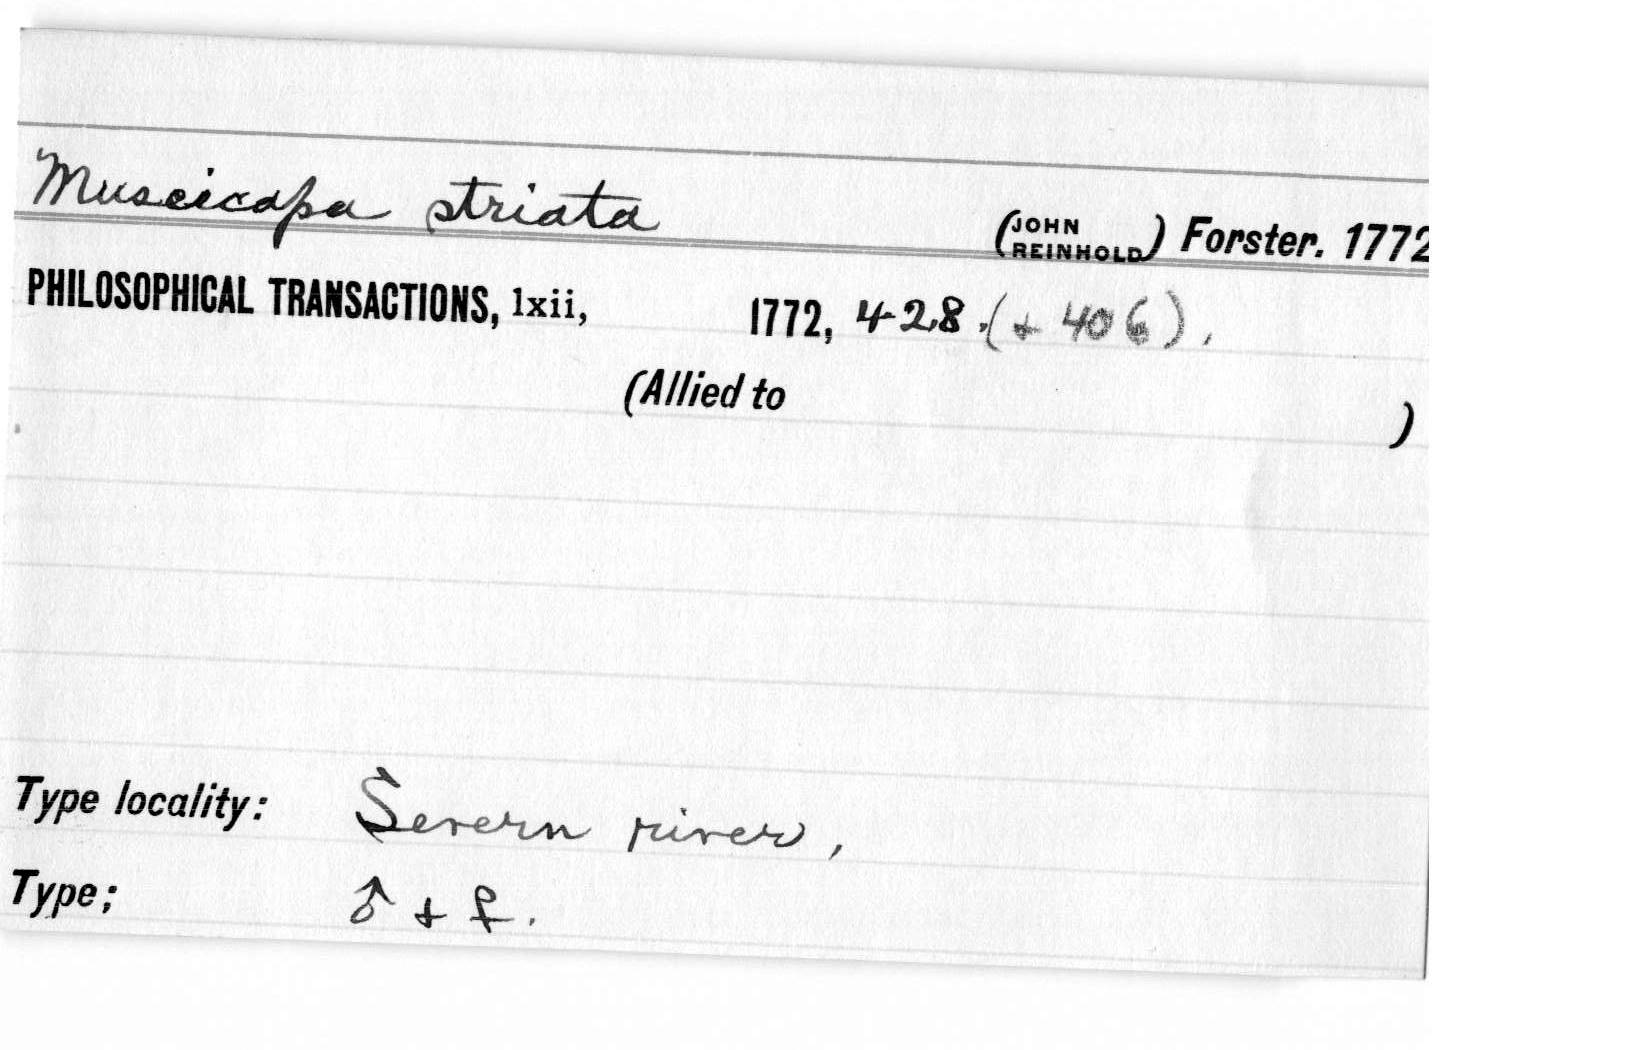 Muscicapa striata (JOHN REINHOLD) Forster. 1772
PHILOSOPHICAL TRANSACTIONS, lxii, 1772, 428. (+ 406).
(Allied to )
Type locality: Severn river,
Type; ♂ + ♀.